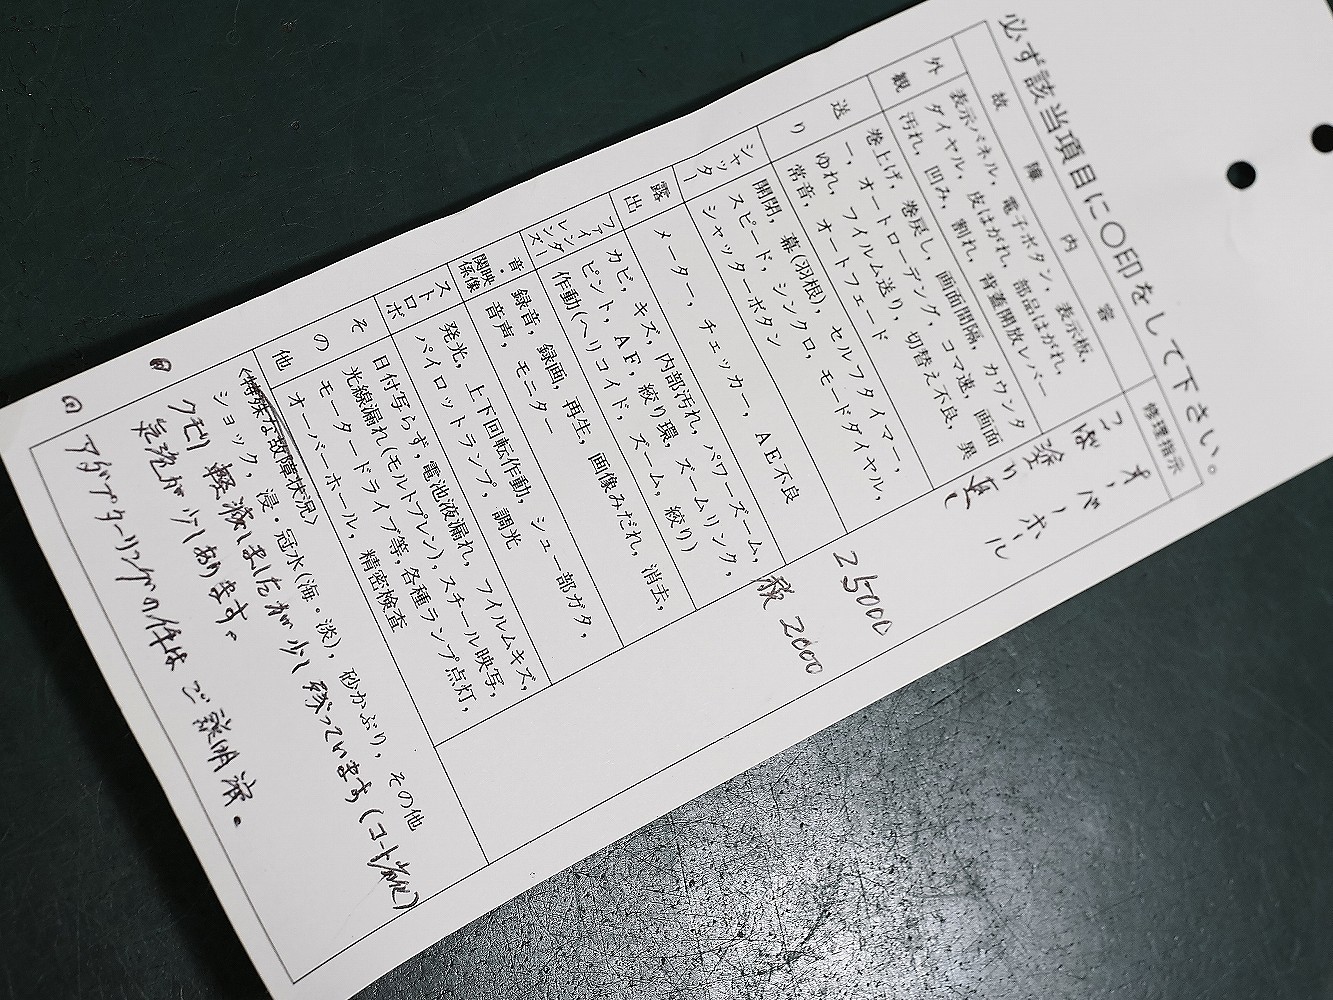 必ず該当項目に○印をして下さい。
故障内容
修理指示
外観
表示パネル，電子ボタン，表示板，
ダイヤル，皮はがれ，部品はがれ，
汚れ，凹み，割れ，背蓋開放レバー
送り
巻上げ，巻戻し，画面間隔，カウンタ
ー，オートローデング，コマ速，画面
ゆれ，フイルム送り，切替え不良，異
常音，オートフェード
シャッター
開閉，幕(羽根)，セルフタイマー，
スピード，シンクロ，モードダイヤル，
シャッターボタン
露出
メーター，チェッカー，AE不良
ファインダー
レンズ
カビ，キズ，内部汚れ，パワーズーム，
ピント，AF，絞り環，ズームリンク，
作動(ヘリコイド，ズーム，絞り)
音・映像関係
録音，録画，再生，画像みだれ，消去，
音声，モニター
ストロボ
発光，上下回転作動，シュー部ガタ，
パイロットランプ，調光
その他
日付写らず，電池液漏れ，フイルムキズ，
光線漏れ(モルトプレン)，スチール映写，
モータードライブ等，各種ランプ点灯，
オーバーホール，精密検査
オーバーホール
コバ
塗り直し
25000
税 2000
〈特殊な故障状況〉
ショック，浸・冠水(海・淡)，砂かぶり，その他
クモリ 軽減しましたが少し残っています(コート劣化)
が少しあります。
アダプターリングの件はご説明済。